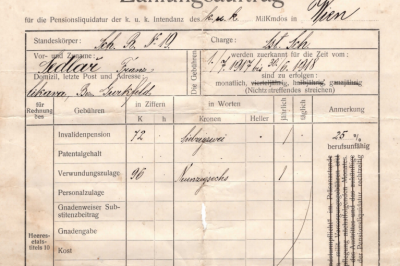 Zahlungsauftrag
für die Pensionsliquidatur der k. u. k. Intendanz des k. u. k. MilKmdos in Wien
Standeskörper: Sch. R. № 19. Charge:
Vor- und Zuname: Franz
Domizil, letzte Post und Adresse:
Čikava, Bez. Gurkfeld
Die Gebühren
werden zuerkannt für die Zeit vom:
1./7. 1917 bis 30./6. 1918
sind zu erfolgen:
monatlich, vierteljährig, halbjährig, ganzjährig
(Nichtzutreffendes streichen)
für Rechnung des Gebühren in Ziffern in Worten jährlich täglich Anmerkung
K h Kronen Heller
Invalidenpension 72 Siebzigzwei 1 25 %
berufsunfähig
Patentalgehalt
Verwundungszulage 96 Neunzigsechs 1
Personalzulage
Gnadenweiser Sub-
stitenzbeitrag
Heeres-
etats-
titels 10
Gnadengabe
Kost